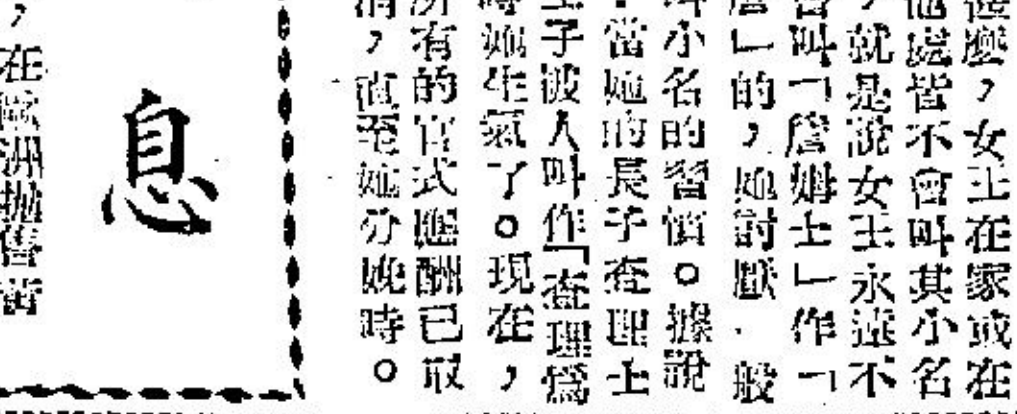 麼，女王在家或在
他處皆不會叫其小名
，就是說女王永遠不
會叫「詹姆士」作「
詹」的，她討厭一般
叫小名的習慣。據說
當她的長子查理士
王子被人叫作「查理」爲
時她生氣了。現在，
所有的官式應酬已取
消，直至她分娩時。
息
，在歐洲拋售黃